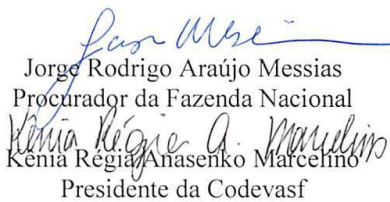 Jorge Rodrigo Araújo Messias
Procurador da Fazenda Nacional
Kênia Régia A. Marcelino
Kênia Régia Anasenko Marcelino
Presidente da Codevasf